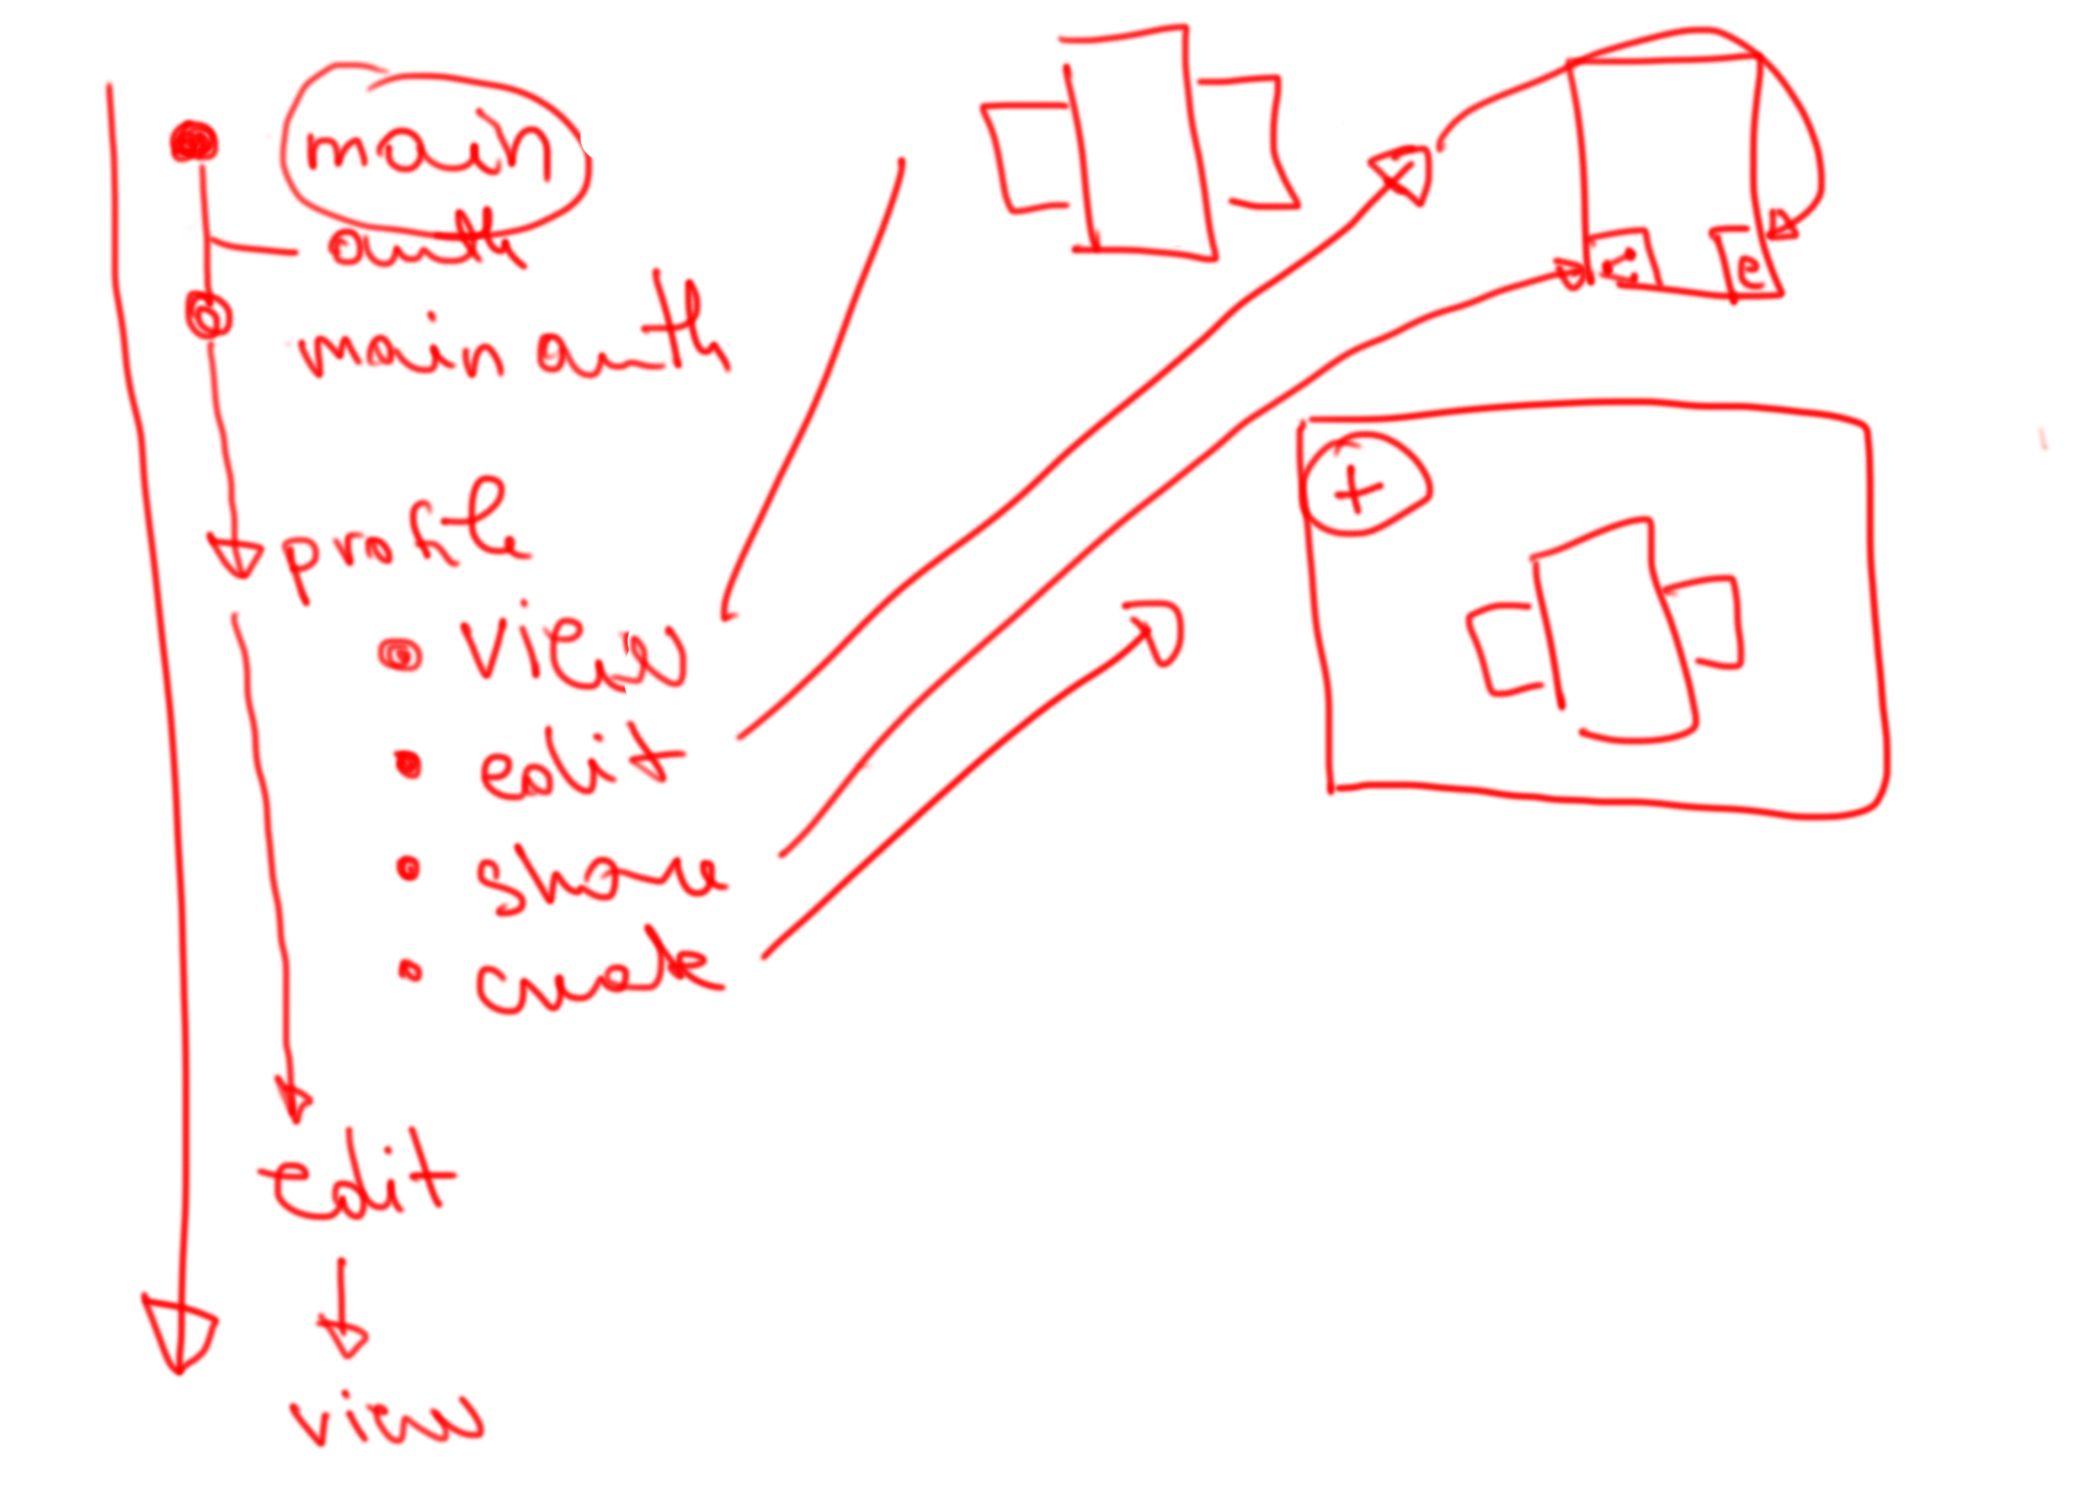 main
auth
main auth
profile
view
edit
share
create
e
+
edit
view